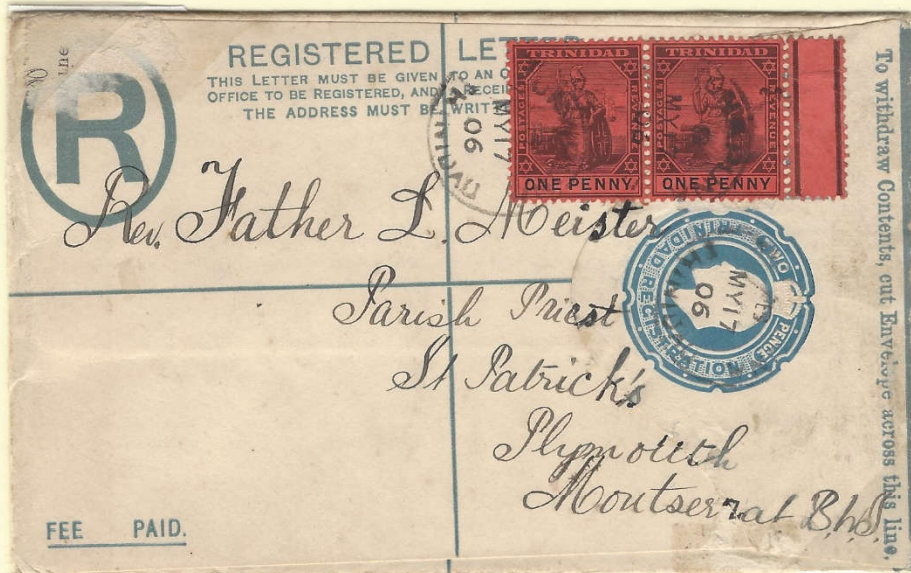 REGISTERED LETTER
THIS LETTER MUST BE GIVEN TO AN O
OFFICE TO BE REGISTERED, AND A RECEI
THE ADDRESS MUST BE WRITT
R
TRINIDAD
POSTAGE & REVENUE
ONE PENNY
TRINIDAD
POSTAGE & REVENUE
ONE PENNY
MY 17
06
MY 17
TRINIDAD REGISTRATION
TWO PENCE
TRINIDAD
MY 17
06
Rev. Father L. Meister
Parish Priest
St Patrick's
Plymouth
Montserrat B.W.I.
FEE PAID.
To withdraw Contents, cut Envelope across this line.